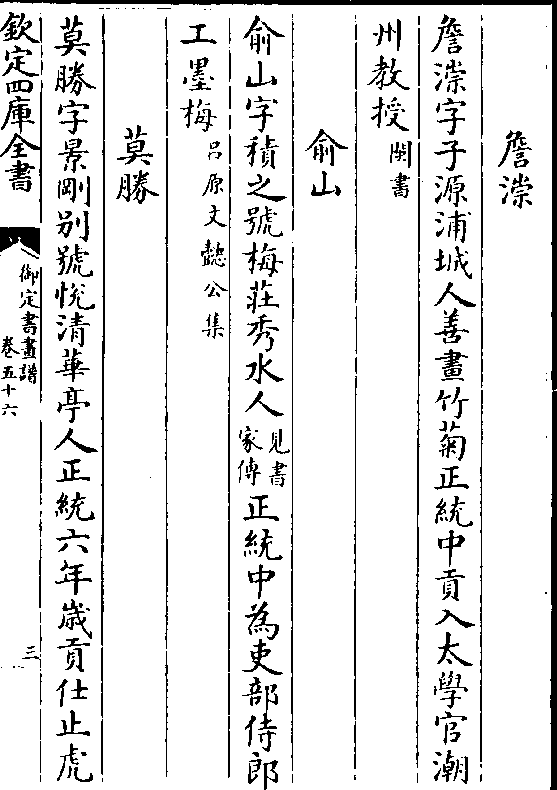 詹漴
詹漴字子源浦城人善畫竹菊正統中貢入太學官潮
州教授閩書
俞山
俞山字積之號梅莊秀水人見書家傳正統中為吏部侍郎
工墨梅呂原文懿公集
莫勝
莫勝字景剛别號悅清華亭人正統六年歲貢仕止虎
欽定四庫全書
御定書畫譜
卷五十六
三